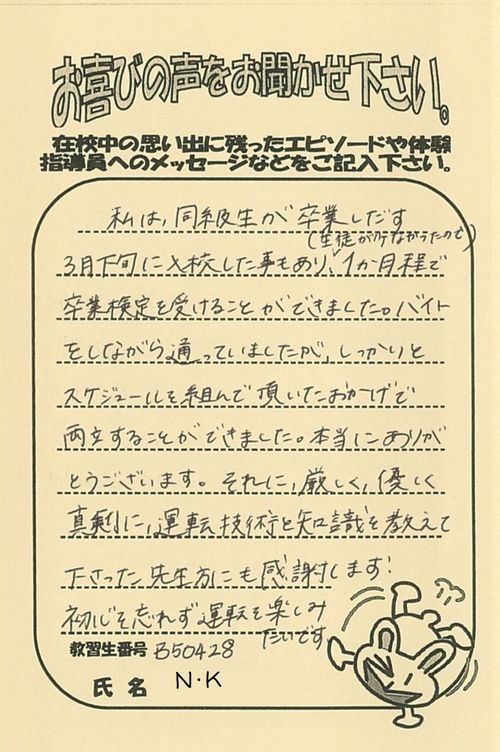 お喜びの声をお聞かせ下さい。
在校中の思い出に残ったエピソードや体験
指導員へのメッセージなどをご記入下さい。
私は、同級生が卒業しだす
(生徒が少なかったので)
3月下旬に入校した事もあり、1か月程で
卒業検定を受けることができました。バイト
をしながら通っていましたが、しっかりと
スケジュールを組んで頂いたおかげで
両立することができました。本当にありが
とうございます。それに、厳しく、優しく
真剣に、運転技術と知識を教えて
下さった先生方にも感謝します!
初心を忘れず運転を楽しみ
たいです
教習生番号 B50428
氏名 N・K